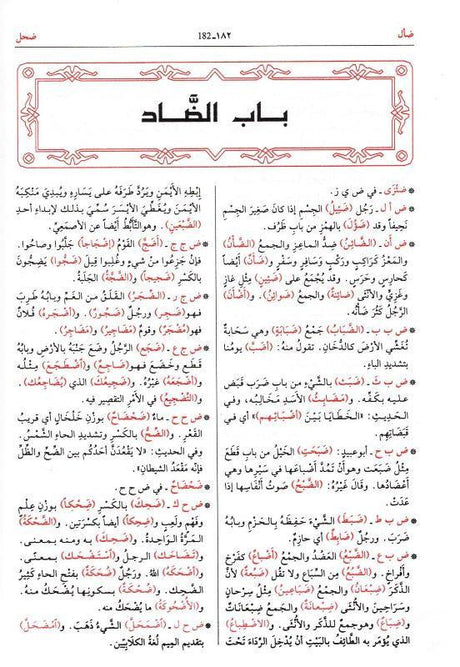 ضأل
١٨٢-182
ضحل
باب الضَّاد
* ضئزَى ـ في ض ي ز.
* ض أ ل ـ رَجُل (ضَئِيلُ) الجِسْمِ إذا كانَ صَغِيرَ الجِسْمِ
نَحِيفاً وقد (ضَؤُلَ) بالهمْزِ من بابِ ظَرُف.
* ض أن ـ (الضَّائِنُ) ضِدُّ الماعِزِ والجمعُ (الضَّأْنُ)
والمَعْزُ كرَاكِبٍ ورَكْبٍ وسَافِرٍ وسَفْرٍ و(ضَأَنٌ) أيضاً
كحَارِسٍ وحَرَس. وقد يُجْمَعُ على (ضَئِينٍ) مِثْلُ غازٍ
وغَزِيٍّ والأُنْثَى (ضائِنَةٌ) والجمعُ (ضَوَائِنُ). و(أَضْأَنَ)
الرَّجُلُ كَثُرَ ضَأْنُه.
* ض ب ب ـ (الضَّبَابُ) جَمْعُ (ضَبَابَةٍ) وهي سَحَابَةٌ
تُغَشِّي الأرْضَ كالدُّخَانِ. تقولُ منه: (أَضَبَّ) يومُنا
بتشديدِ الباءِ.
* ض ب ث ـ (ضَبَثَ) بالشَّيْءِ من بابِ ضَرَبَ قَبَضَ
عليه بكَفِّه. و(مَضَابِثُ) الأَسَدِ مَخَالِبُه. وفي
الحديثِ: «الخَطَايَا بَيْنَ (أَضْبَاثِهم)» أي في
قَبَضَاتِهم.
* ض ب ح ـ أبو عبيدٍ: (ضَبَحَتِ) الخَيْلُ من بابِ قَطَعَ
مِثْلُ ضَبَعَت وهو أنْ تَمُدَّ أضْبَاعَها في سَيْرِها وهي
أعْضَادُها. وقالَ غَيْرُه: (الضَّبْحُ) صَوتُ أنْفَاسِها إذا
عَدَتْ.
* ض ب ط ـ (ضَبَطَ) الشَّيْءَ حَفِظَهُ بالحَزْمِ وبابُه
ضَرَبَ. ورجُلٌ (ضَابِطٌ) أي حازِمٌ.
* ض ب ع ـ (الضَّبْعُ) العَضُدُ والجمعُ (أَضْبَاعٌ) كفَرْخٍ
وأَفْراخٍ. و(الضَّبُعُ) مِن السِّبَاعِ ولا تَقُلْ (ضَبُعَةٌ) لأنَّ
الذَّكَرَ (ضِبْعَانٌ) والجَمْعُ (ضَبَاعِينُ) مِثْلُ سِرْحَانٍ
وسَرَاحِينَ والأُنْثَى (ضِبْعَانَةٌ) والجمعُ ضِبْعَانَاتٌ
و(ضِبَاعٌ) وهوجمعٌ للذَّكَرِ والأُنْثَى. و(الاضْطِبَاعُ)
الذي يُؤمَر به الطَّائِفُ بالبَيْتِ أنْ يُدْخِلَ الرِّدَاءَ تَحْتَ
إبْطِه الأَيْمَنِ ويَرُدَّ طَرَفَهُ على يَسَارِه ويُبْدِيَ مَنْكِبَهُ
الأيْمَنَ ويُغَطِّيَ الأيْسَرَ سُمِّيَ بذلك لإبْداءِ أحدِ
(الضَّبْعَيْنِ). وهو التَّأَبُّطُ أيضاً عن الأصمَعِيِّ.
* ض ج ج ـ (أَضَجَّ) القَوْمُ (إضْجَاجاً) جَلَّبُوا وصاحُوا.
فإنْ جَزِعُوا مِنْ شَيْءٍ وغُلِبُوا قِيلَ (ضَجُّوا) يَضِجُّونَ
بالكَسْرِ (ضَجِيجاً) و(الضَّجَّةُ) الجَلَبَةُ.
* ض ج ر ـ (الضَّجَرُ) القَلَقُ من الغَمِّ وبابُه طَرِبَ
فهو (ضَجِرٌ) ورجُلٌ (ضَجُورٌ). و(أَضْجَرَهُ) فُلانٌ
فهو(مُضْجَرٌ) وقومٌ (مَضَاجِرُ) و(مَضَاجِيرُ).
* ض ج ع ـ (ضَجَعَ) الرَّجُلُ وضَعَ جَنْبَهُ بالأَرْضِ وبابُه
قَطَعَ وخَضَعَ فهو(ضاجِعٌ). و(اضْطَجَعَ) مِثْلُه
و(أَضْجَعَهُ) غَيْرُه. و(ضَجِيعُكَ) الذي (يُضَاجِعُكَ).
و(التَّضْجِيعُ) في الأمْرِ التقصير فيه.
* ض ح ح ـ ماءٌ (ضَحْضَاحٌ) بوزنِ خَلْخَالٍ أي قَريبُ
القَعْرِ. و(الضِّحُّ) بالكَسْرِ وتشديدِ الحاءِ الشَّمْسُ.
وفي الحديثِ: «لا يَقْعُدَنَّ أحَدُكُم بَيْنَ الضِّحِّ والظِّلِّ
فإنَّه مَقْعَدُ الشيطانِ».
* ضَحْضَاحٌ ـ في ض ح ح.
* ض ح ك ـ (ضَحِكَ) بالكَسْرِ (ضَحِكاً) بوزنِ عِلْمٍ
وفَهْمٍ ولَعِبٍ و(ضِحِكاً) أيضاً بكَسْرَتَين. و(الضَّحْكَةُ)
المَرَّةُ الوَاحِدةُ. و(ضَحِكَ) به ومنه بمعنى.
و(تَضَاحَكَ) الرجلُ و(اسْتَضْحَكَ) بمعنًى.
و(أَضْحَكَهُ) اللهُ. ورجُلٌ (ضُحَكَةٌ) بفتح الحاءِ كَثِيرُ
الضَّحِك. و(ضُحْكَةٌ) بسكونِها يُضْحَكُ منه.
و(الأُضْحُوكَةُ) ما يُضْحَكُ منه.
* ض ح ل ـ (اضْمَحَلَّ) الشَّيْءُ ذَهَبَ. و(امْضَحَلَّ)
بتقديم الميم لُغَةُ الكلابِيِّين.